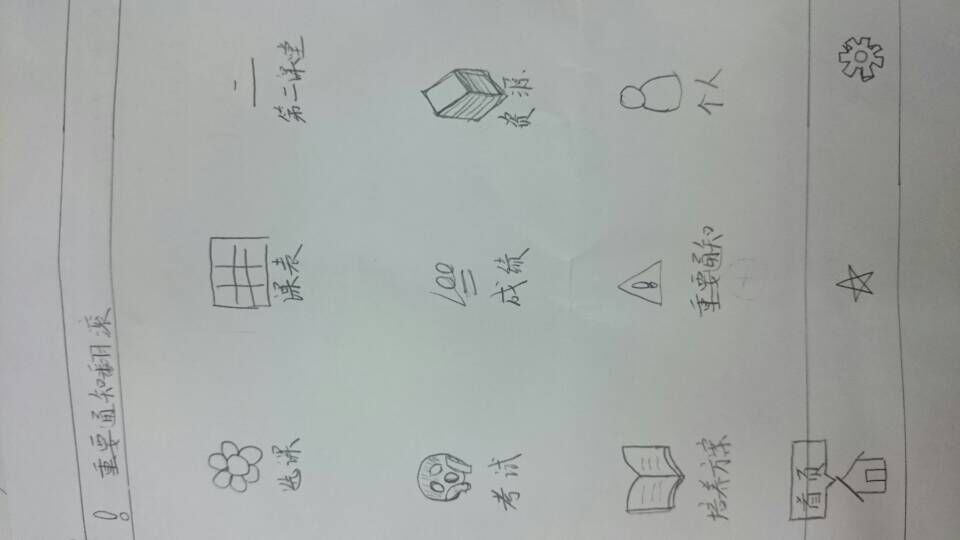 ! 重要通知翻滚
二
选课 课表 第二课堂
100
考试 成绩 资源
!
培养方案 重要通知 个人
首页